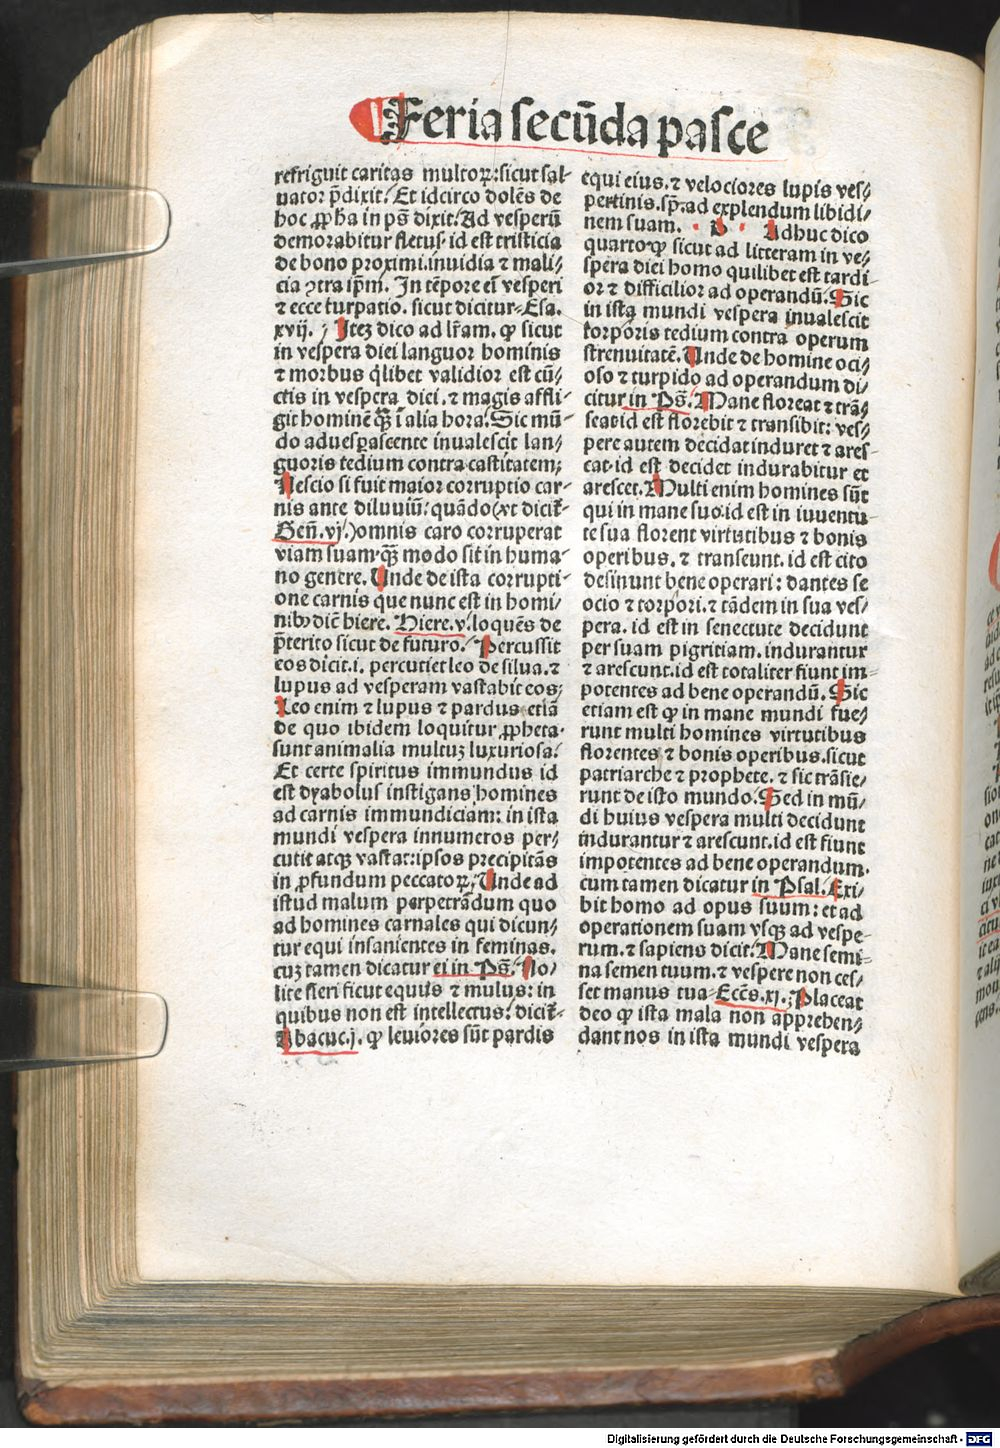 Feria secūda pasce
refriguit caritas multoꝝ: sicut sal⸗
uator p̄dixit. Et idcirco dolēs de
hoc ꝓpħa in ps̄ dixit. Ad vesperū
demorabitur fletus· id est tristicia
de bono proximi.inuidia ⁊ mali⸗
cia ꝯtra ip̄m. In tēpore eī vesperi
⁊ ecce turpatio. sicut dicitur Esa.
xvij. ; Itez dico ad lr̄am. ꝙ sicut
in vespera diei languor hominis
⁊ morbus q̄libet validior est cū⸗
ctis in vespera dici. ⁊ magis affli⸗
git hominē q̄ȝ ī alia hora. Sic mū⸗
do aduesꝑascente inualescit lan⸗
guoris tedium contra castitatem;
Nescio si fuit maior corruptio car⸗
nis ante diluuiū: quādo (vt dicit̄
Gen̄. vj.) omnis caro corruperat
viam suam·q̄ȝ modo sit in huma⸗
no genere. Unde de ista corrupti⸗
one carnis que nunc est in homi⸗
nibꝰ dic̄ hiere. Hiere.v. loquēs de
p̄terito sicut de futuro. Percussit
eos dicit.i. percutiet leo de silua. ⁊
lupus ad vesperam vastabit eos;
Leo enim ⁊ lupus ⁊ pardus etiā
de quo ibidem loquitur ꝓpheta·
sunt animalia multuȝ luxuriosa.
Et certe spiritus immundus id
est dyabolus instigans homines
ad carnis immundiciam: in ista
mundi vespera innumeros per⸗
cutit atqȝ vastat: ipsos precipitās
in ꝓfundum peccatoꝝ; Unde ad
istud malum perpetrādum quo
ad homines carnales qui dicun⸗
tur equi insanientes in feminas.
cuȝ tamen dicatur ei in Ps̄. No⸗
lite fieri sicut equus ⁊ mulus: in
quibus non est intellectus. dicit̄
Abacuc.j. ꝙ leuiores sūt pardis
equi eius. ⁊ velociores lupis ves⸗
pertinis. sp̄. ad explendum libidi⸗
nem suam. · P · Adhuc dico
quarto ꝙ sicut ad litteram in ve⸗
spera diei homo quilibet est tardi⸗
or ⁊ difficilior ad operandū. Sic
in ista mundi vespera inualescit
torporis tedium contra operum
strenuitatē. Unde de homine oci⸗
oso ⁊ turpido ad operandum di⸗
citur in Ps̄. Mane floreat ⁊ trās⸗
seat id est florebit ⁊ transibit: ves⸗
pere autem decidat induret ⁊ ares⸗
cat·id est decidet indurabitur et
arescet. Multi enim homines sūt
qui in mane suo·id est in iuuentu⸗
te sua florent virtutibus ⁊ bonis
operibus. ⁊ transeunt. id est cito
desinunt bene operari: dantes se
ocio ⁊ torpori. ⁊ tādem in sua ves⸗
pera. id est in senectute decidunt
per suam pigritiam. indurantur
⁊ arescunt. id est totaliter fiunt im⸗
potentes ad bene operandū. Sic
etiam est ꝙ in mane mundi fue⸗
runt multi homines virtutibus
florentes ⁊ bonis operibus.sicut
patriarche ⁊ prophete. ⁊ sic trāsie⸗
runt de isto mundo. Sed in mū⸗
di huius vespera multi decidunt
indurantur ⁊ arescunt.id est fiunt
impotentes ad bene operandum.
cum tamen dicatur in Psal. Exi⸗
bit homo ad opus suum: et ad
operationem suam vsqȝ ad vespe⸗
rum. ⁊ sapiens dicit. Mane semi⸗
na semen tuum. ⁊ vespere non ces⸗
set manus tua Ecc̄s. xj. ; Placeat
deo ꝙ ista mala non apprehen⸗
dant nos in ista mundi vespera
Digitalisierung gefördert durch die Deutsche Forschungsgemeinschaft - DFG